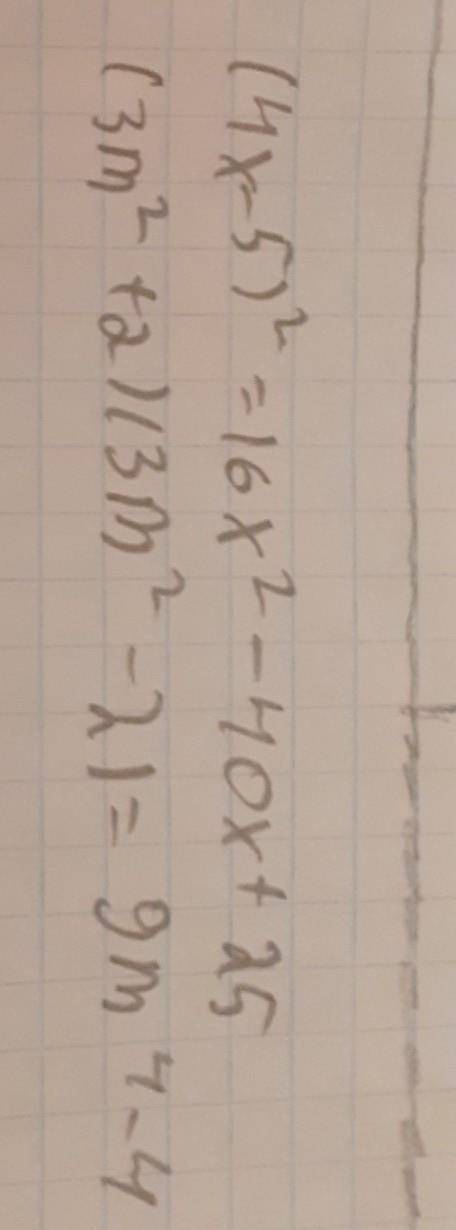 (4x-5)² = 16x² - 40x + 25
(3m² + 2)(3m² - 2) = 9m⁴ - 4